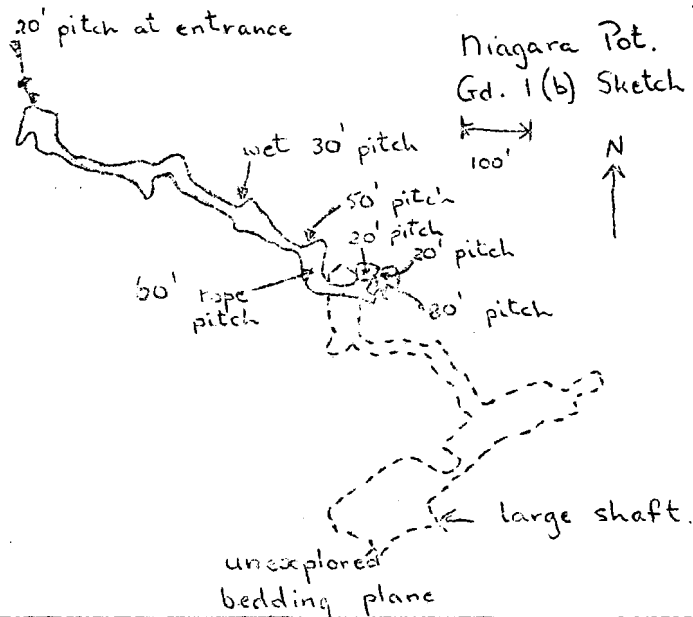 20' pitch at entrance
Niagara Pot.
Gd. 1(b) Sketch
100'
N
wet 30' pitch
50' pitch
20' pitch
20' pitch
60' rope
pitch
80' pitch
large shaft.
unexplored
bedding plane